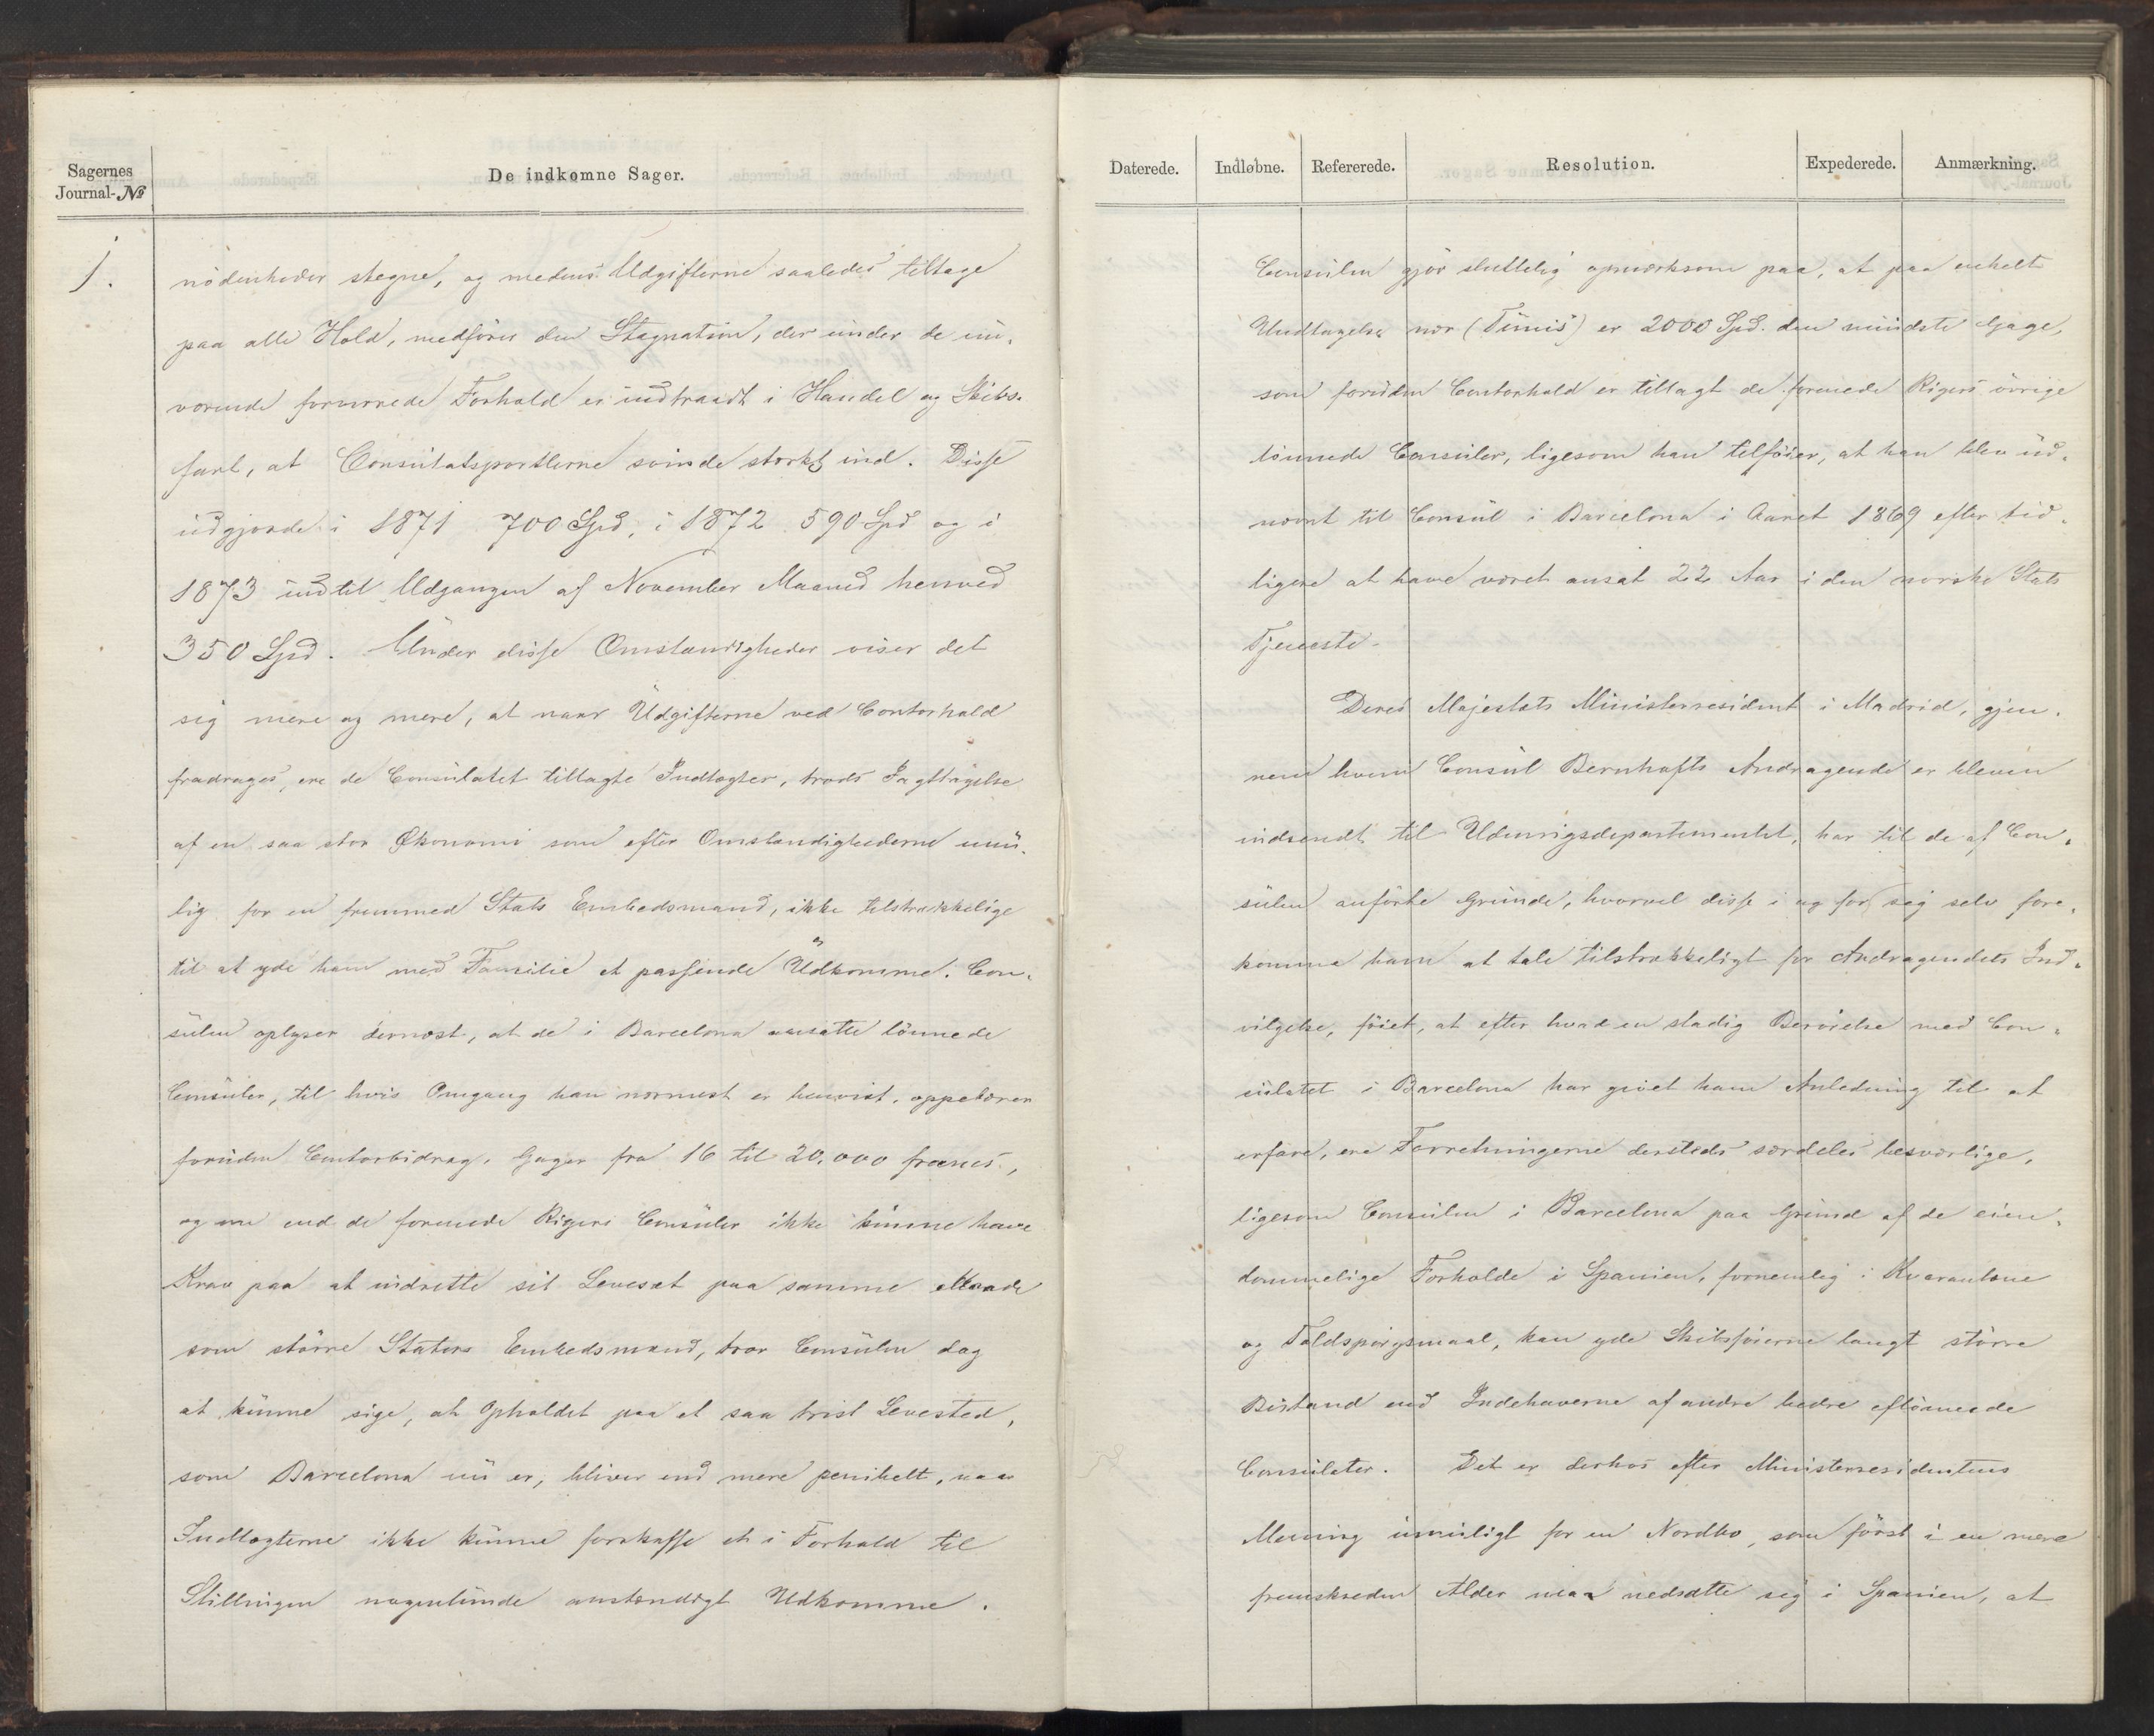 Sagernes
Journal-№
De indkomne Sager.
1.
nödenheder stegne, og medens Udgifterne saaledes tiltage
paa alle Hold, medförer den Stagnation, der under de nu-
værende forvirrede Forhold er indtraadt i Handel og Skibs-
fart, at Consulatsportlerne svinde stærkt ind. Disse
udgjorde i 1871 700 Spd, i 1872 590 Spd og i
1873 indtil Udgangen af November Maaned henved
350 Spd. Under disse Omstændigheder viser det
sig mere og mere, at naar Udgifterne ved Contorhold
fradrages, ere de Consulatet tillagte Indtægter, trods Iagttagelse
af en saa stor Økonomi som efter Omstændighederne mu-
lig for en fremmed Stats Embedsmand, ikke tilstrækkelige
til at yde ham med Familie et passende Udkomme. Con-
sulen oplyser dernæst, at de i Barcelona ansatte lönnede
Consuler, til hvis Omgang han nærmest er henvist, oppebærer
foruden Contorbidrag, Gager fra 16 til 20,000 francs,
og om end de forenede Rigers Consuler ikke kunne have
Krav paa at indrette sit Levesæt paa samme Maade
som större Staters Embedsmænd, tror Consulen dog
at kunne sige, at Opholdet paa et saa trist Levested,
som Barcelona nu er, bliver end mere penibelt, naar
Indtægterne ikke kunne forskaffe et i Forhold til
Stillingen nogenlunde anstændigt Udkomme.
Daterede.
Indløbne.
Refererede.
Resolution.
Expederede.
Anmærkning.
Consulen gjör sluttelig opmærksom paa, at paa enkelt
Undtagelse nær (Tunis) er 2000 Spd. den mindste Gage,
som foruden Contorhold er tillagt de forenede Rigers övrige
lönnede Consuler, ligesom han tilföier, at han blev ud-
nævnt til Consul i Barcelona i Aaret 1869 efter tid-
ligere at have været ansat 22 Aar i den norske Stats
Tjeneste.
Deres Majestæts Ministerresident i Madrid, gjen-
nem hvem Consul Bernhofts Andragende er bleven
indsendt til Udenrigsdepartementet, har til de af Con-
sulen anförte Grunde, hvorvel disse i og for sig selv fore-
komme ham at tale tilstrækkeligt for Andragendets Ind-
vilgelse, föiet, at efter hvad en stadig Berörelse med Con-
sulatet i Barcelona har givet ham Anledning til at
erfare, ere Forretningerne dersteds særdeles besværlige,
ligesom Consulen i Barcelona paa Grund af de eien-
dommelige Forholde i Spanien, fornemlig i Kvarantæne
og Toldspörgsmaal, kan yde Skibsförerne langt större
Bistand end Indehaverne af andre bedre aflönnede
Consulater. Det er derhos efter Ministerresidentens
Mening umuligt for en Nordbo, som först i en mere
fremskreden Alder maa nedsætte sig i Spanien, at